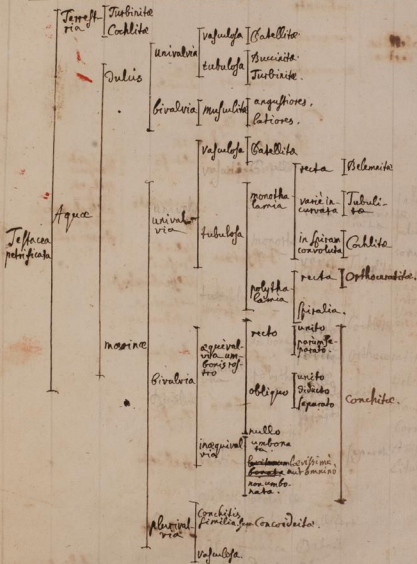 Testacea
petrificata
Terrest
ria
Turbinitæ
Cochlitæ
Aquæ
dulcis
univalvia
vasculosa
Patellitæ
tubulosa
Buccinitæ
Turbinitæ.
bivalvia
musculitæ
angustiores.
latiores.
marinæ
unival
via
vasculosa
Patellitæ
tubulosa
monotha
lamia
recta
Belemnitæ
varie in
curvata
Tubuli
tæ
in spiram
convoluta
Cochlitæ
polytha
lamia
recta
Orthoceratitæ.
spiralia.
bivalvia
æquival
via um
bonis ros
tro
recto
unito
parum se
parato.
obliquo
unito
diducto
separato
nullo
inæquival
via
umbona
ta.
lævissimè,
aut omnino
non umbo
nata.
Conchitæ.
plurival
via
Conchitis
similia
vasculosa.